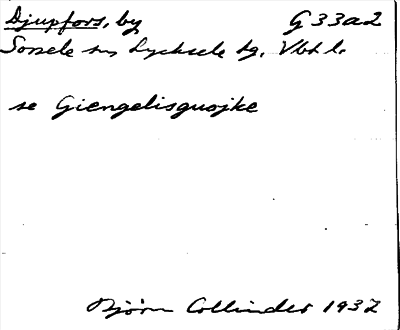 Djupfors, by G 33a2
Sorsele sn Lycksele tg. Vbtl.
se Giengelisguojke
Björn Collinder 1937